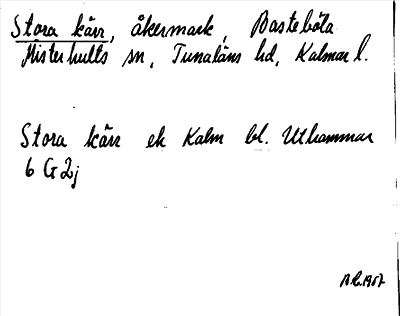 Stora kärr, åkermark, Basteböla
Misterhults sn, Tunaläns hd, Kalmar l.
Stora kärr ek Kalm bl. Uthammar
6 G 2j